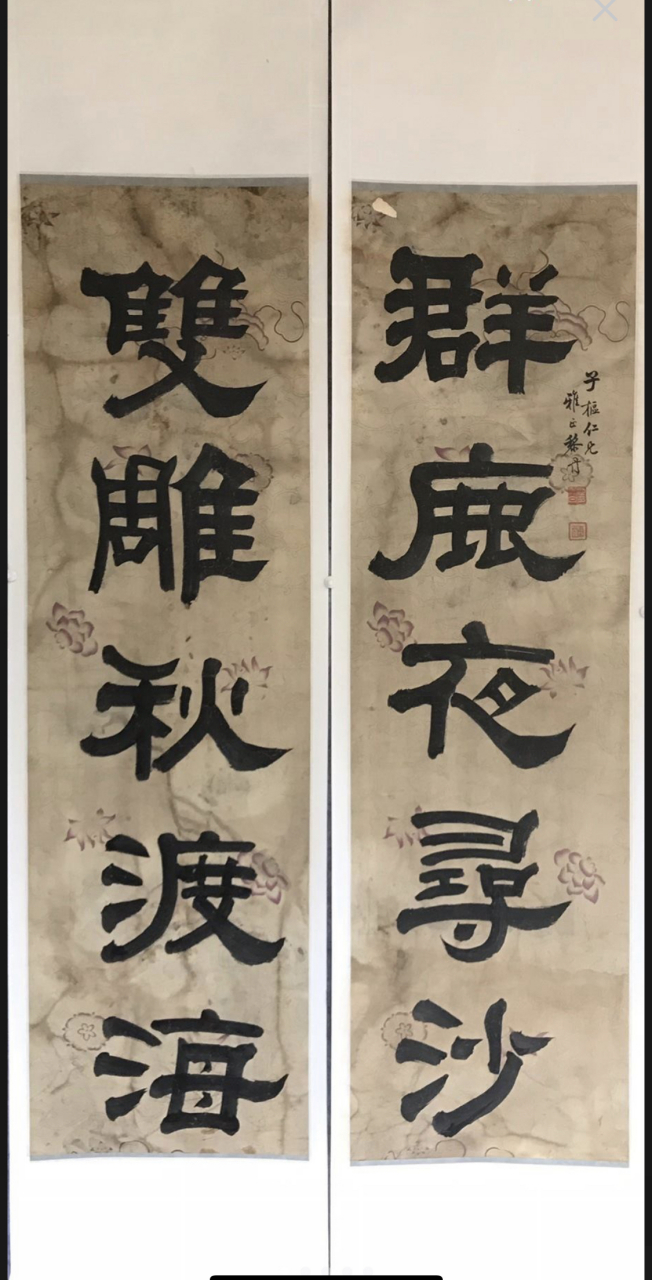 雙雕秋渡海
群鹿夜尋沙
子樞仁兄
雅正黎丹